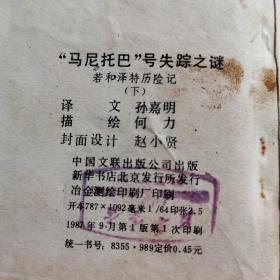 “马尼托巴”号失踪之谜
若和泽特历险记
(下)
译 文 孙嘉明
描 绘 何 力
封面设计 赵小贤
中国文联出版公司出版
新华书店北京发行所发行
冶金测绘印刷厂印刷
开本787×1092毫米1/64印张2.5
1987年9月第1版第1次印刷
统一书号：8355·989定价0.45元